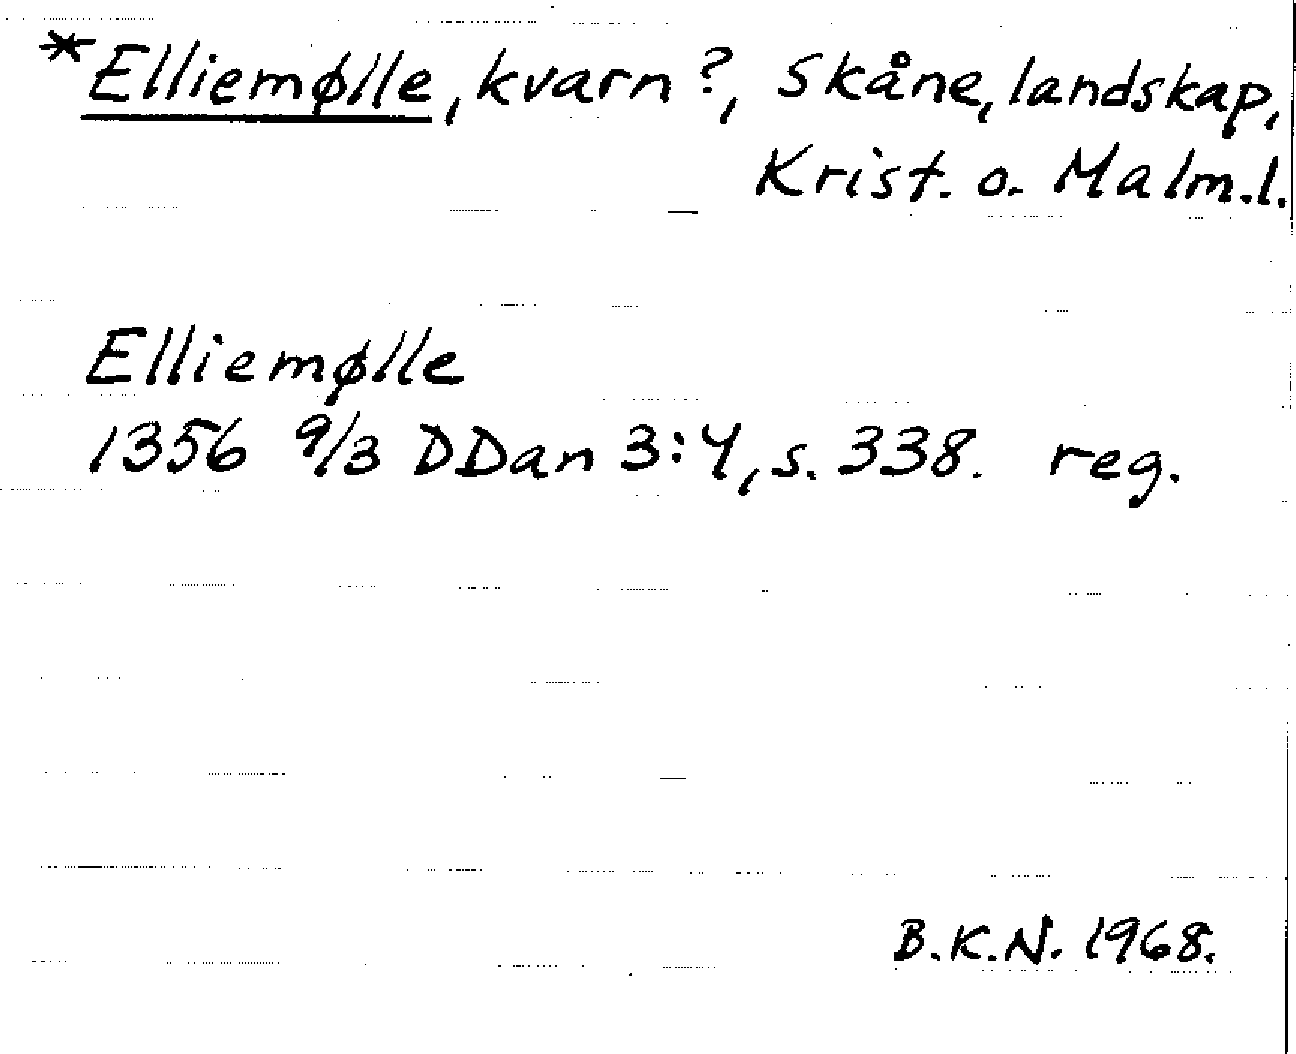 *Elliemølle, kvarn?, Skåne, landskap,
Krist. o. Malm.l.
Elliemølle
1356 9/3 DDan 3:4, s. 338. reg.
B.K.N. 1968.